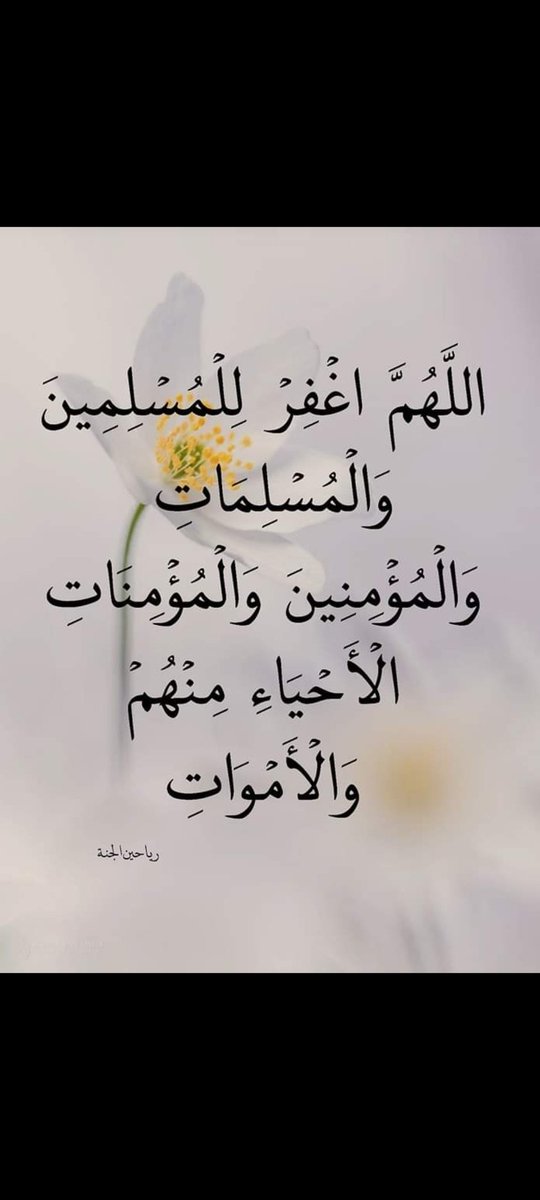 اللَّهُمَّ اغْفِرْ لِلْمُسْلِمِينَ
وَالْمُسْلِمَاتِ
وَالْمُؤْمِنِينَ وَالْمُؤْمِنَاتِ
الْأَحْيَاءِ مِنْهُمْ
وَالْأَمْوَاتِ
رياحين الجنة